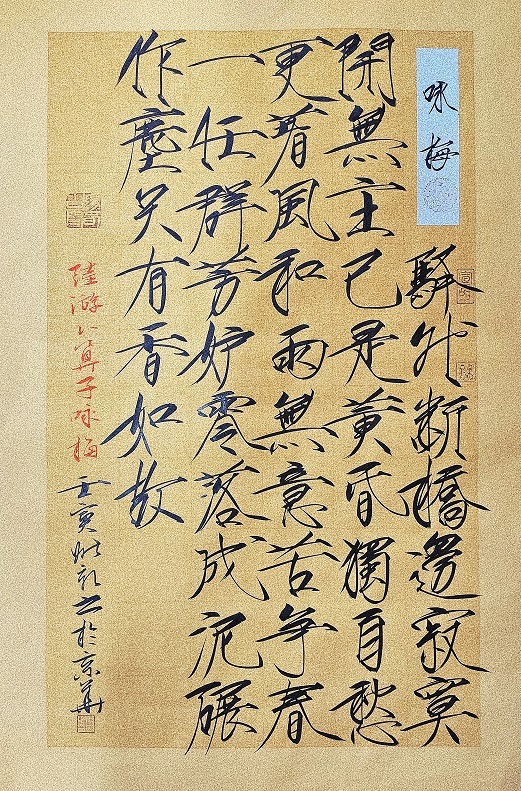 咏梅
驛外断橋邊寂寞
開無主已是黄昏獨自愁
更着風和雨無意苦争春
一任群芳妒零落成泥碾
作塵只有香如故
陸游卜算子咏梅
壬寅书於京華